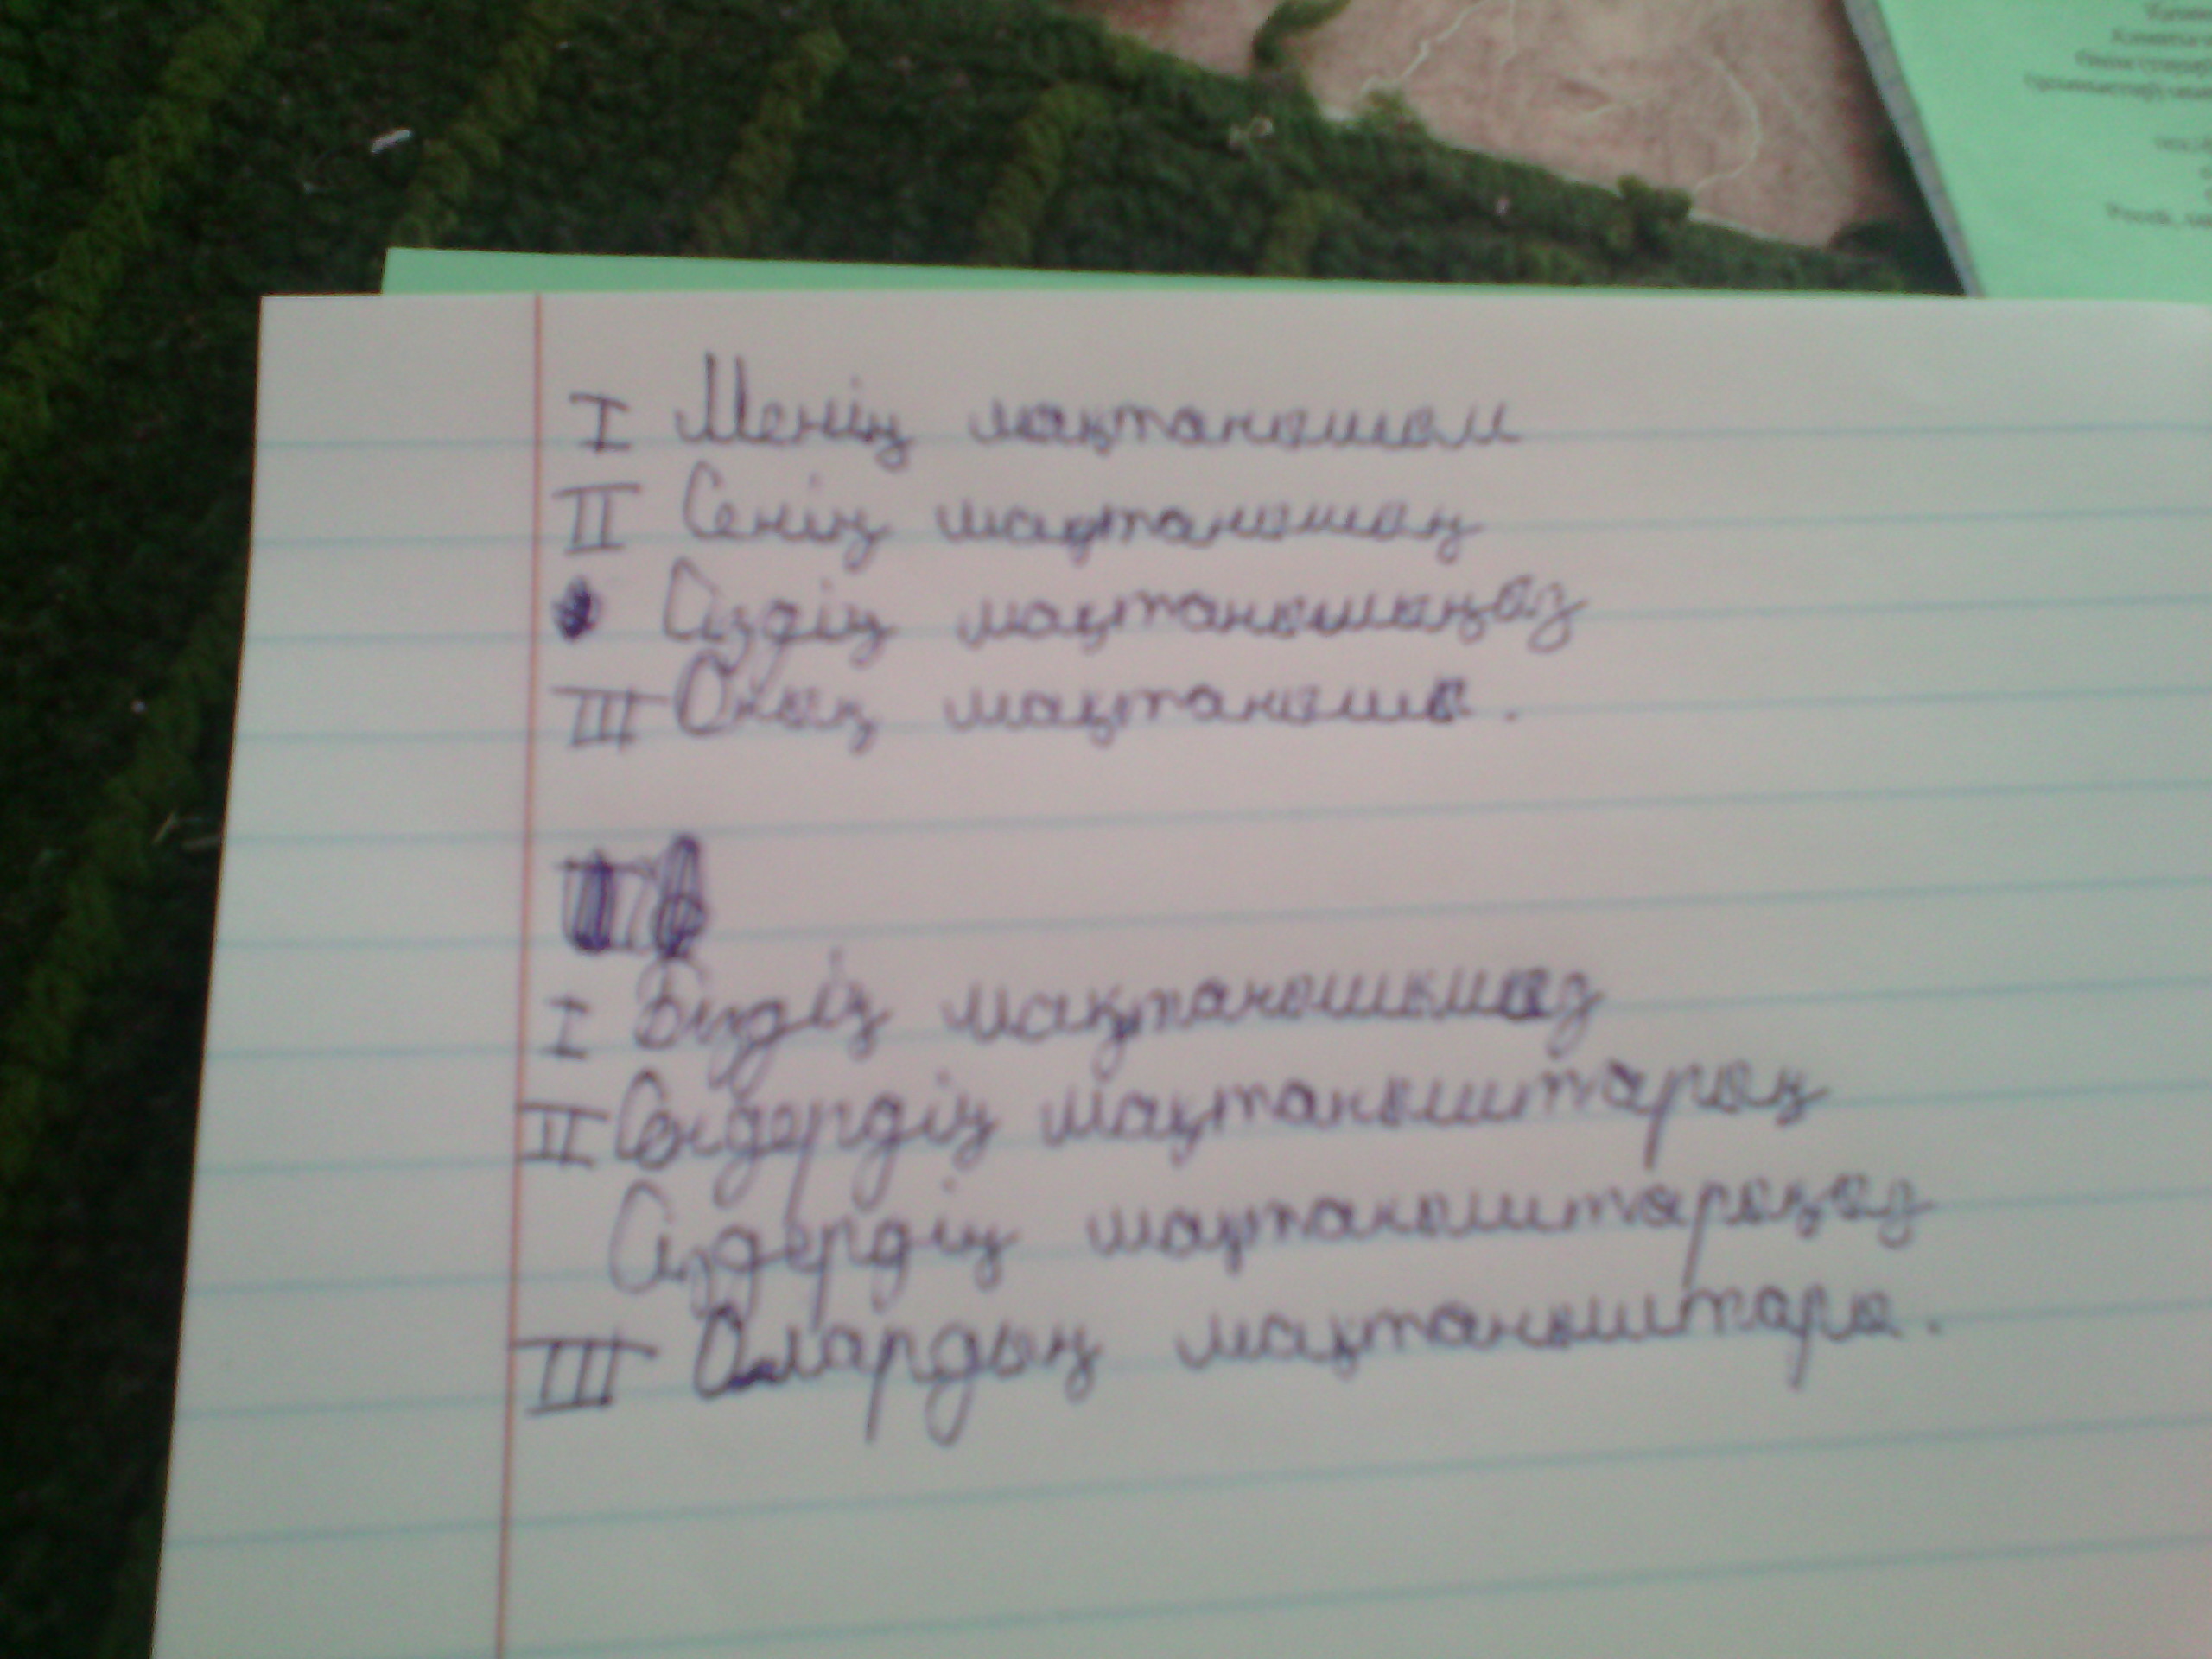 I Менің мақтанышым
II Сенің мақтанышың
Сіздің мақтанышыңыз
III Оның мақтанышы.
I Біздің мақтанышымыз
II Сендердің мақтаныштарың
Сіздердің мақтаныштарыңыз
III Олардың мақтаныштары.